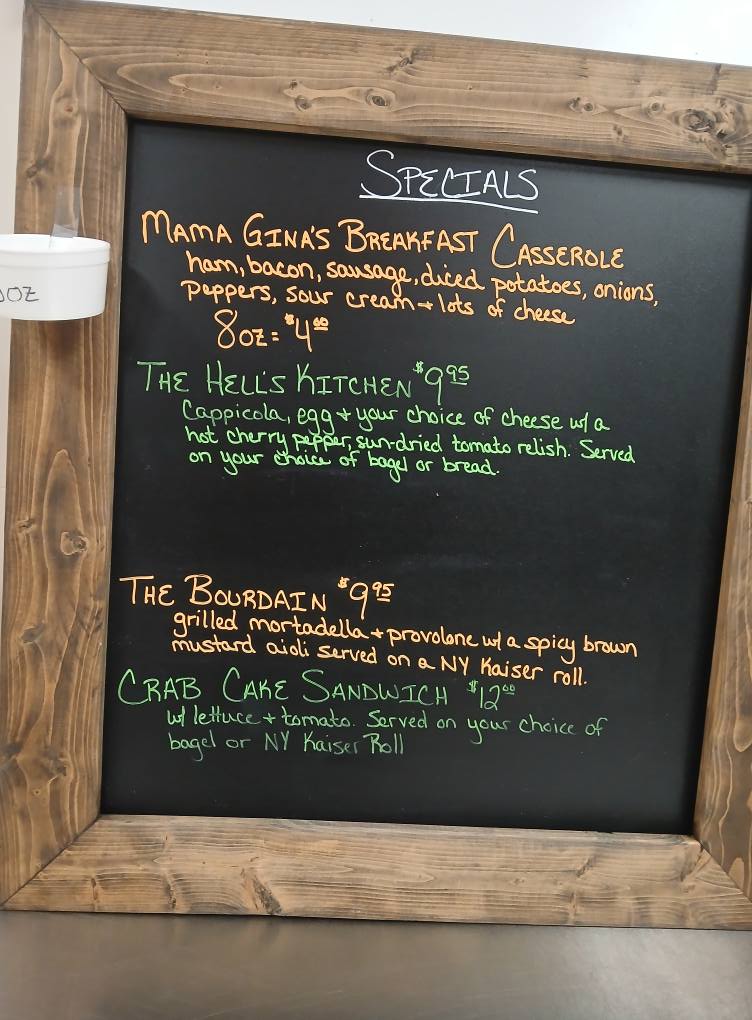 SPECIALS
MAMA GINA'S BREAKFAST CASSEROLE
ham, bacon, sausage, diced potatoes, onions,
peppers, sour cream + lots of cheese
8oz = $4.00
THE HELL'S KITCHEN $9.95
Cappicola, egg + your choice of cheese w/ a
hot cherry pepper, sun-dried tomato relish. Served
on your choice of bagel or bread.
THE BOURDAIN $9.95
grilled mortadella + provolone w/ a spicy brown
mustard aioli served on a NY Kaiser roll.
CRAB CAKE SANDWICH $12.00
w/ lettuce + tomato. Served on your choice of
bagel or NY Kaiser Roll